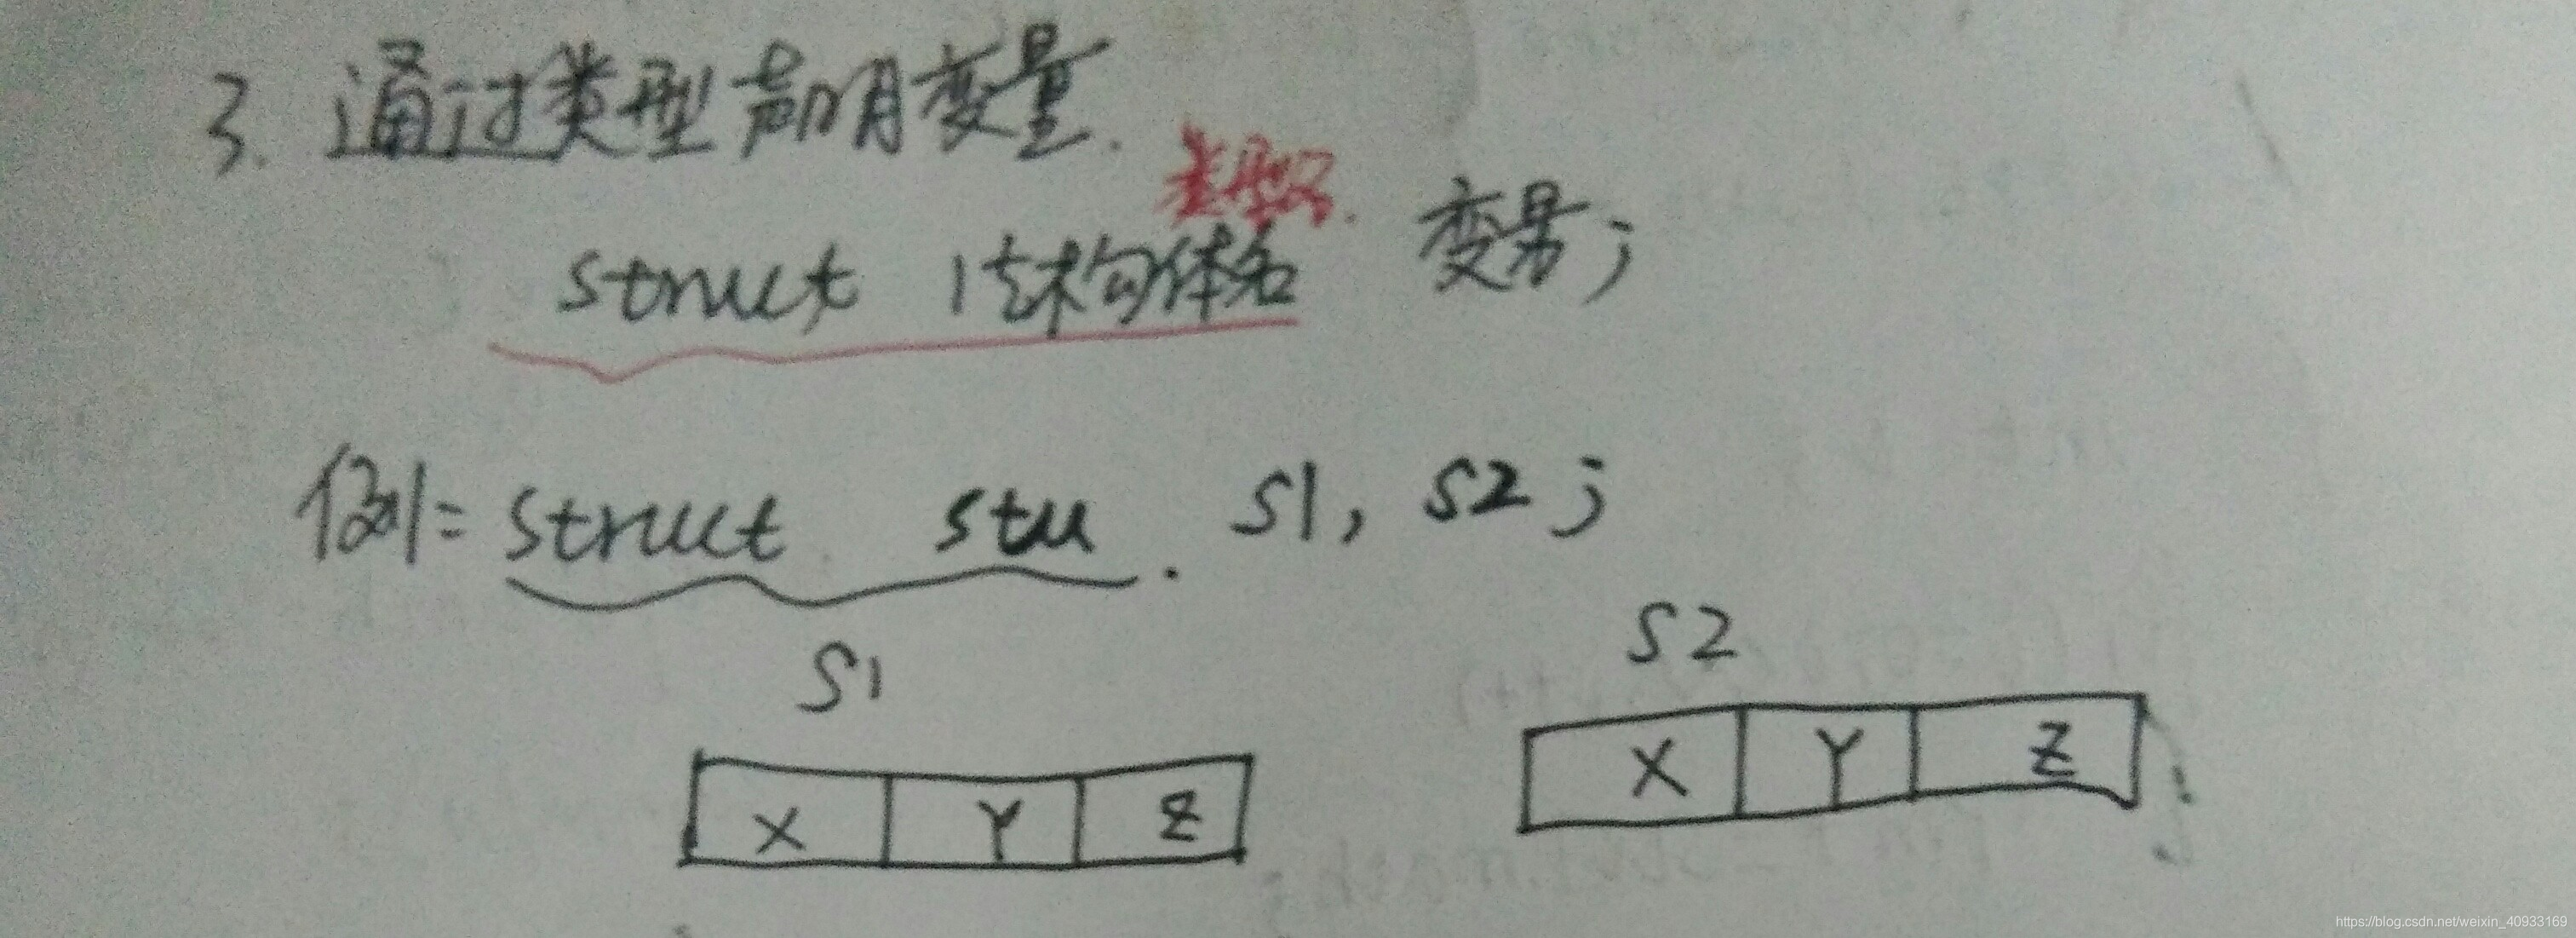 3. 通过类型声明变量.
类型名.
struct 结构体名 变量;
例: struct stu. S1, S2;
S1
S2
X Y Z
X Y Z
https://blog.csdn.net/weixin_40933169